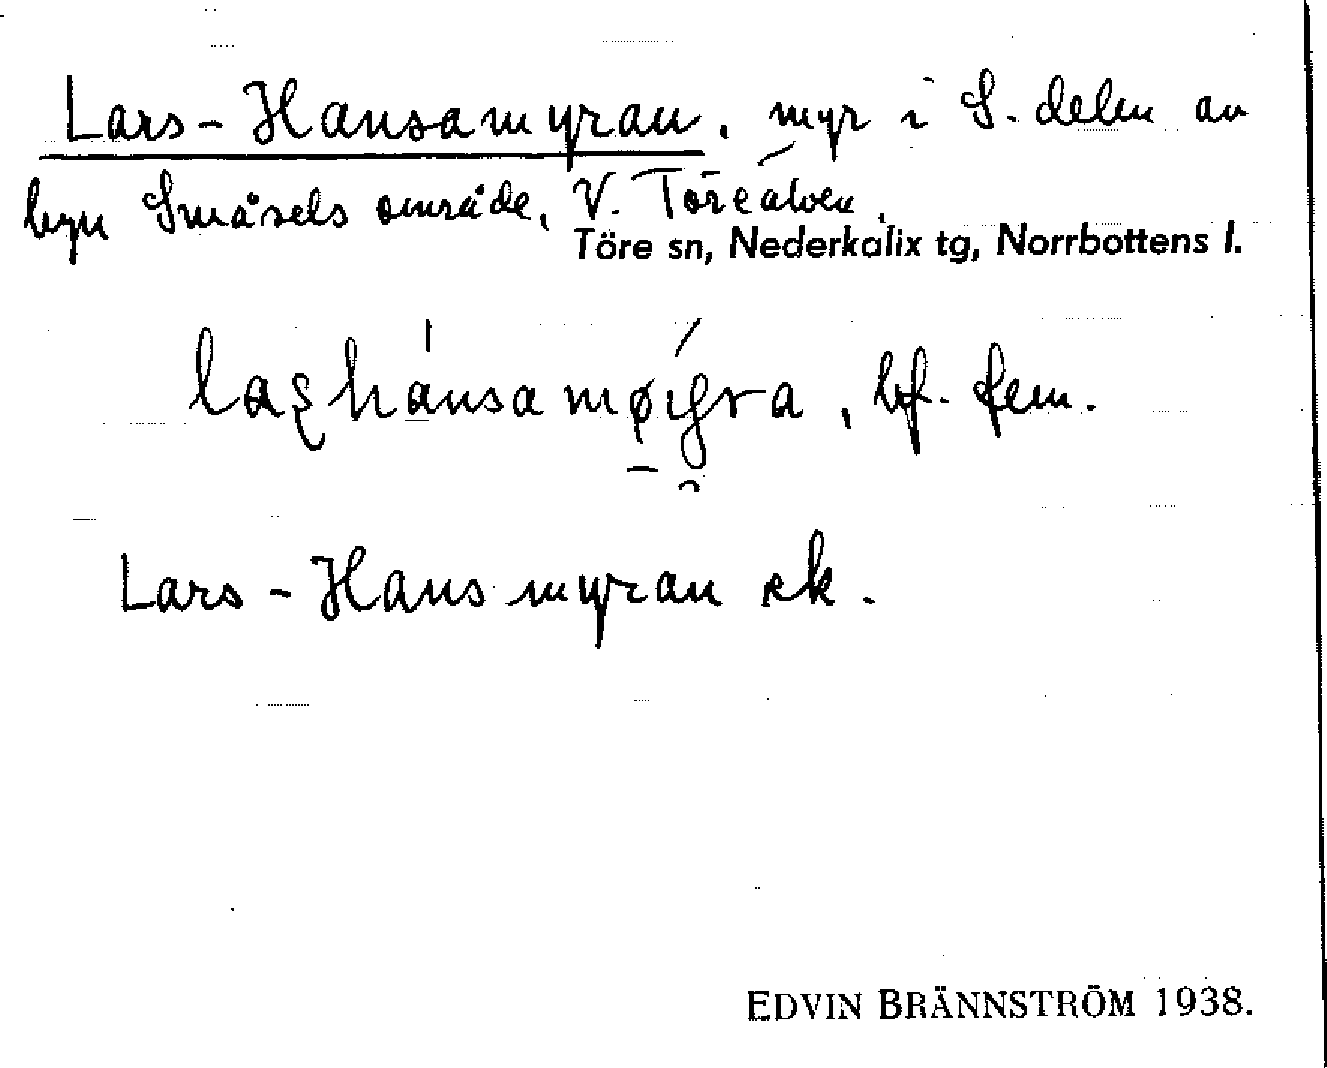 Lars-Hansamyran, myr i S. delen av
byn Småsels område, V. Töreälven.
Töre sn, Nederkalix tg, Norrbottens l.
bf. fem.
Lars-Hansmyran ek.
EDVIN BRÄNNSTRÖM 1938.